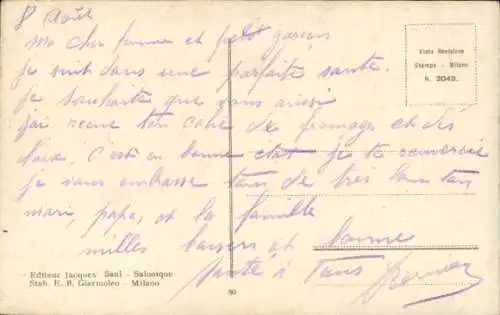 8 Août
Ma cher femme et petit garcon
je suit dans une parfaite santé.
je souhaite que vous aussi
j'ai recue ton de fromage et des
c'est en bonne etat je te remercie
je vous embrasse tous de très ton
mari, papa, et la famille
milles baisers et bonne
santé à tous
Visto Revisione
Stampa - Milano
N. 3049.
Editeur Jacques Saul - Salonique
Stab. E. B. Giarmoleo - Milano
80